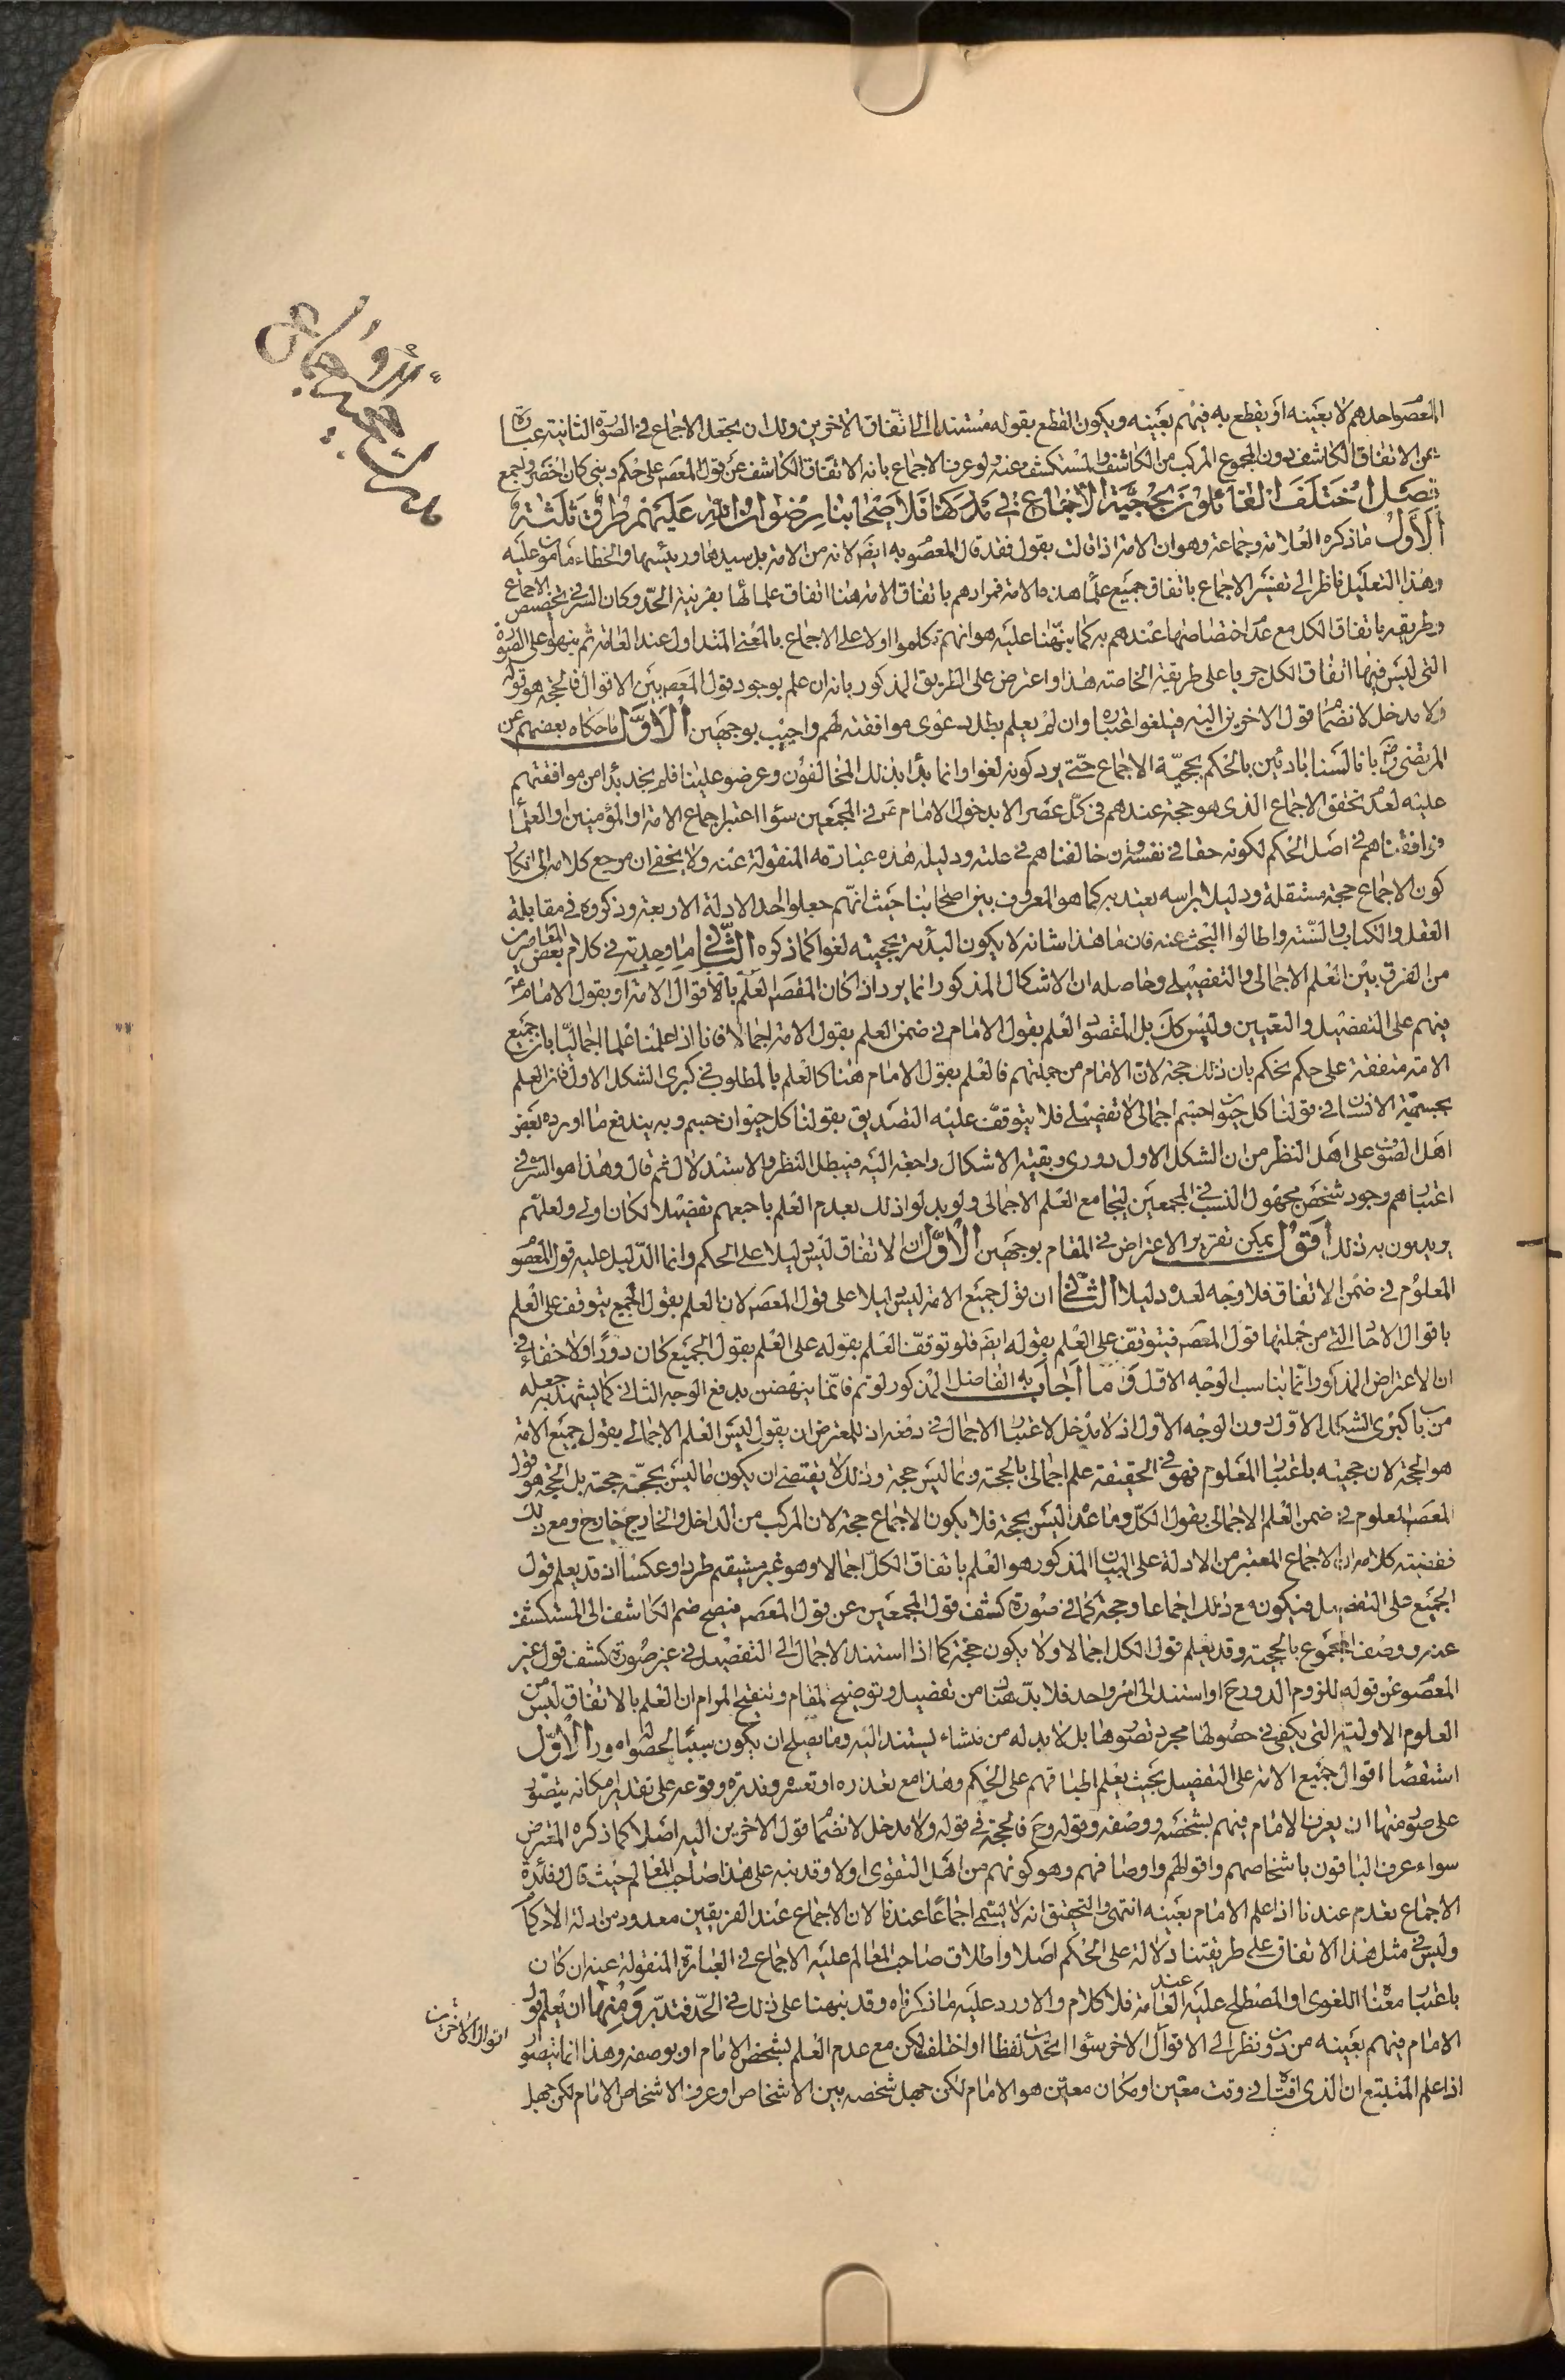 المعصوا حدهم لا بعينه او يقطع به فيهم بعينه ويكون القطع بقوله مستندا الى اتفاق الاخرين ولك ان يجعل الاجماع فى الصورة الثانية عبارة
عن الاتفاق الكاشف دون المجموع المركب من الكاشف والمستكشف عنه ولو عرف الاجماع بانه الاتفاق الكاشف عن قول المعصم على حكم دينى كان اخصر واجمع
فصل اختلف القائلون بحجية الاجماع فى مدركها فلاصحابنا رضوان الله عليهم طرق ثلثة
الاول ما ذكره العلامة وجماعة وهو ان الامة اذا قالت بقول فقد قال المعصو به ايضا لانه من الامة بل سيدها ورئيسها والخطاء مامون عليه
وهذا التعليل ناظر الى تفسير الاجماع باتفاق جميع علماء هذه الامة فمرادهم باتفاق الامة هنا اتفاق علمائها بقرينة الحد وكان السر فى تخصيص الاجماع
وطريقه باتفاق الكل مع عدم اختصاصهما عندهم به كما نبهنا عليه هو انهم تكلموا اولا على الاجماع بالمعنى المتداول عند العامة ثم نبهوا على الصورة
التى ليس فيها اتفاق الكل جريا على طريقة الخاصة هذا واعترض على الطريق المذكور بانه ان علم بوجود قول المعصم بين الاقوال فالحجة هو قوله
ولا مدخل لانضمام قول الاخرين اليه فيلغوا اعتباره وان لم يعلم بطل دعوى موافقته لهم واجيب بوجهين الاول ما حكاه بعضهم عن
المرتضى رض بانا لسنا بادئين بالحكم بحجية الاجماع حتى يرد كونه لغوا وانما بدأ بذلك المخالفون وعرضوه علينا فلم نجد بدا من موافقتهم
عليه لعدم تحقق الاجماع الذى هو حجة عندهم فى كل عصر الا بدخول الامام ع فى المجمعين سواء اعتبر اجماع الامة او المؤمنين او العلماء
فوافقناهم فى اصل الحكم لكونه حقا فى نفسه وان خالفناهم فى علته ودليله هذه عبارته المنقولة عنه ولا يخفى ان مرجع كلامه الى انكار
كون الاجماع حجة مستقلة ودليلا براسه يعتد به كما هو المعروف بين اصحابنا حيث انهم جعلوا احد الادلة الاربعة وذكروه فى مقابلة
العقل والكتاب والسنة واطالوا البحث عنه فان ما هذا شانه لا يكون البدئة بحجيته لغوا كما ذكره الثانى ما وجدته فى كلام بعض المعاصرين
من الفرق بين العلم الاجمالى والتفصيلى وحاصله ان الاشكال المذكور انما يرد اذا كان المقصد العلم بالاقوال الامة او بقول الامام ع
بينهم على التفصيل والتعيين وليس كك بل المقصو العلم بقول الامام فى ضمن العلم بقول الامة اجمالا فانا اذا علمنا علما اجماليا بان جميع
الامة متفقة على حكم نحكم بان ذلك حجة لان الامام من جملتهم فالعلم بقول الامام هنا كالعلم بالمطلوب فى كبرى الشكل الاول فان العلم
بجسمية الانسان فى قولنا كل حيوان جسم اجمالى لا تفصيلى فلا يتوقف عليه التصديق بقولنا كل حيوان جسم وبه يندفع ما اورده بعض
اهل التصوف على اهل النظر من ان الشكل الاول دورى وبقية الاشكال راجعة اليه فيبطل النظر والاستدلال ثم قال وهذا هو السر فى
اعتبارهم وجود شخص مجهول النسب فى المجمعين ليجامع العلم الاجمالى ولو بدلوا ذلك بعدم العلم باجمعهم تفصيلا لكان اولى ولعلهم
يريدون به ذلك اقول يمكن تقرير الاعتراض فى المقام بوجهين الاول ان الاتفاق ليس دليلا على الحكم وانما الدليل عليه قول المعصو
المعلوم فى ضمن الاتفاق فلا وجه لعده دليلا الثانى ان قول جميع الامة ليس دليلا على قول المعصم لان العلم بقول الجميع يتوقف على العلم
باقوال الاحاد التى من جملتها قول المعصم فيتوقف على العلم بقوله ايضا فلو توقف العلم بقوله على العلم بقول الجميع كان دورا ولا خفاء فى
ان الاعتراض المذكور انما يناسب الوجه الاول وما اجاب به الفاضل المذكور لو تم فانما ينهض بدفع الوجه الثانى كما يشهد به جعله
من باب كبرى الشكل الاول دون الوجه الاول اذ لا مدخل لاعتبار الاجمال فى دفعه اذ للمعترض ان يقول ليس العلم الاجمالى بقول جميع الامة
هو الحجة لان حجيته باعتبار المعلوم فهو فى الحقيقة علم اجمالى بالحجة وبما ليس حجة وذلك لا يقتضى ان يكون ما ليس بحجة حجة بل الحجة هو قول
المعصم المعلوم فى ضمن العلم الاجمالى بقول الكل وما عداه ليس بحجة فلا يكون الاجماع حجة لان المركب من الداخل والخارج خارج ومع ذلك
فقضية كلامه ان الاجماع المعتبر من الادلة على البيان المذكور هو العلم باتفاق الكل اجمالا وهو غير مستقيم طردا وعكسا اذ قد يعلم قول
الجميع على التفصيل فيكون مع ذلك اجماعا وحجة كما فى صورة كشف قول المجمعين عن قول المعصم فيصح ضم الكاشف الى المستكشف
عنه ووصف المجموع بالحجية وقد يعلم قول الكل اجمالا ولا يكون حجة كما اذا استند الاجمال الى التفصيل فى غير صورة كشف قول غير
المعصو عن قوله للزوم الدور ح او استند الى امر واحد فلا بد هنا من تفصيل وتوضيح المقام وتنقيح المرام ان العلم بالاتفاق ليس من
العلوم الاولية التى يكفى فى حصولها مجرد تصورها بل لا بد له من منشاء يستند اليه وما يصلح ان يكون سببا لحصوله امور الاول
استقصاء اقوال جميع الامة على التفصيل بحيث يعلم اطباقهم على الحكم وهذا مع تعذره او تعسره وندرة وقوعه على تقدير امكانه يتصور
على صور منها ان يعرف الامام فيهم بشخصه ووصفه وقوله وح فالحجة فى قوله ولا مدخل لانضمام قول الاخرين اليه اصلا كما ذكره المعترض
سواء عرف الباقون باشخاصهم واقوالهم واوصافهم وهو كونهم من اهل الفتوى او لا وقد نبه على هذا صاحب المعالم حيث قال وفائدة
الاجماع تعدم عندنا اذا علم الامام بعينه انتهى والتحقيق انه لا يسمى اجماعا عندنا لان الاجماع عند الفريقين معدود من ادلة الاحكام
وليس فى مثل هذا الاتفاق على طريقتنا دلالة على الحكم اصلا واطلاق صاحب المعالم عليه الاجماع فى العبارة المنقولة عنه ان كان
باعتبار معناه اللغوى او المصطلح عليه عند العامة فلا كلام والا ورد عليه ما ذكرناه وقد نبهنا على ذلك فى الحد فتدبر ومنها ان يعلم قول
الامام فيهم بعينه من دون نظر الى الاقوال الاخر سواء اتحدت لفظا او اختلف لكن مع عدم العلم بشخص الامام او بوصفه وهذا انما يتصور
اقوال الاخرين
اذا علم المتتبع ان الذى افتى فى وقت معين او مكان معين هو الامام لكن جهل شخصه بين الاشخاص او عرف الاشخاص الامام لكن جهل